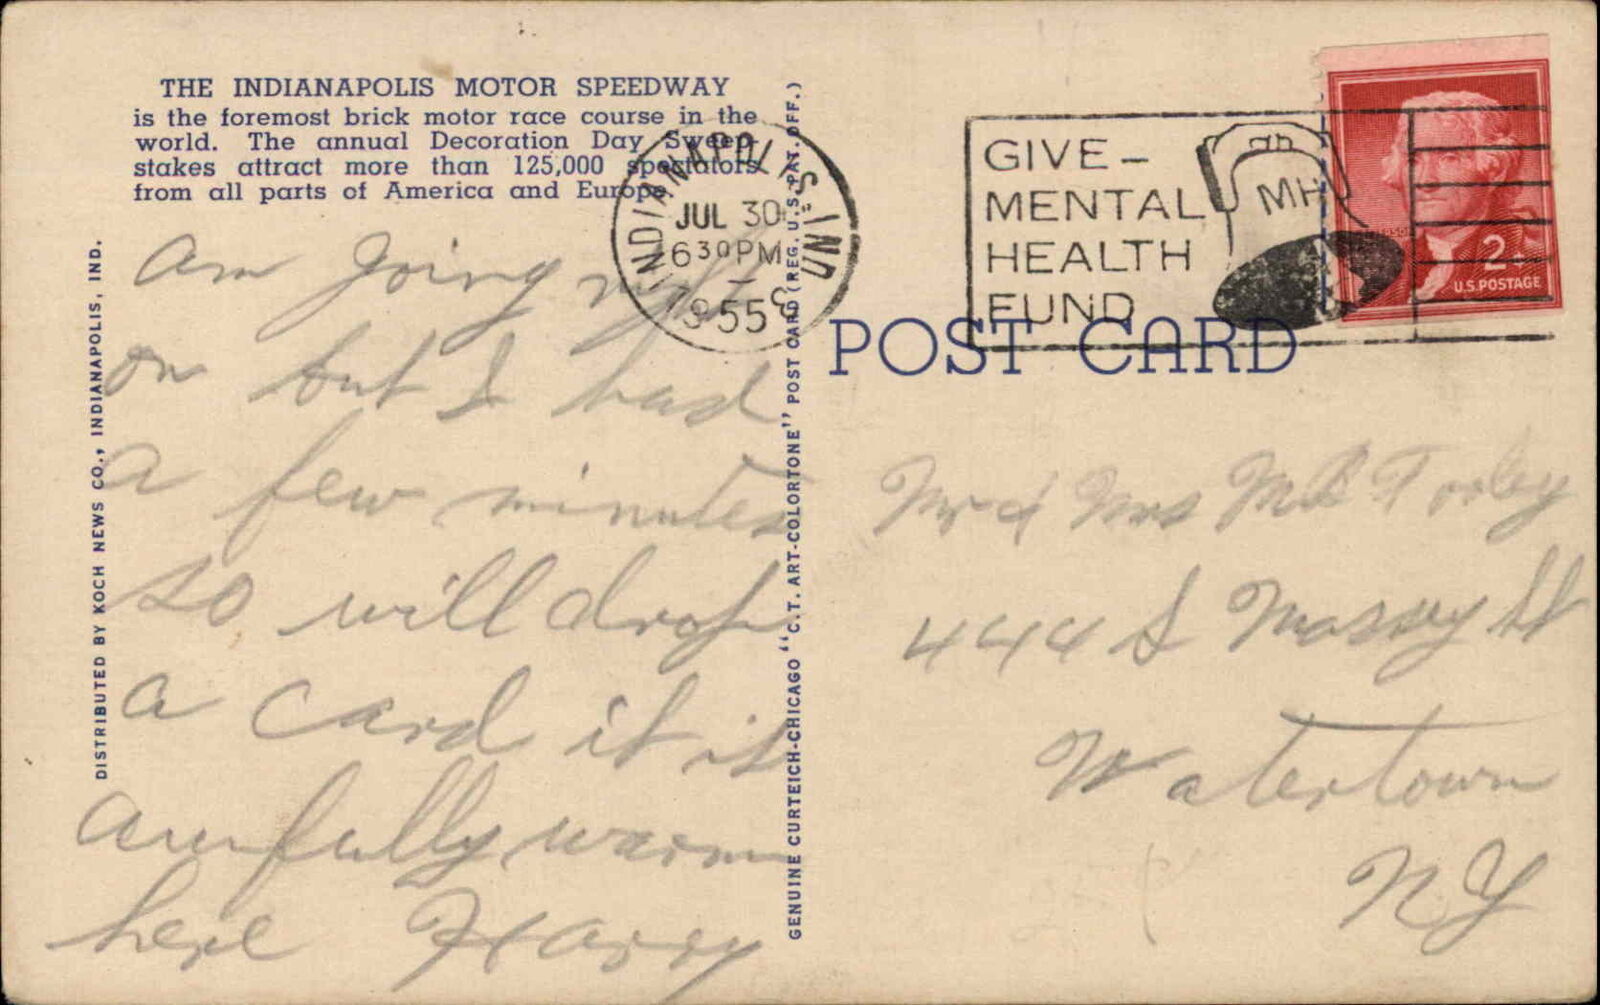 THE INDIANAPOLIS MOTOR SPEEDWAY
is the foremost brick motor race course in the
world. The annual Decoration Day Sweep-
stakes attract more than 125,000 spectators
from all parts of America and Europe.
INDIANAPOLIS IND
JUL 30
6 30 PM
1955
GIVE -
MENTAL
HEALTH
FUND
MH
2¢
U.S. POSTAGE
POST CARD
am going right
on but I had
a few minutes
so will drop
a card it is
awfully warm
here Harry
Mr & Mrs MB Tooley
444 S Massey St
Watertown
NY
DISTRIBUTED BY KOCH NEWS CO., INDIANAPOLIS, IND.
GENUINE CURTEICH-CHICAGO "C.T. ART-COLORTONE" POST CARD (REG. U.S. PAT. OFF.)